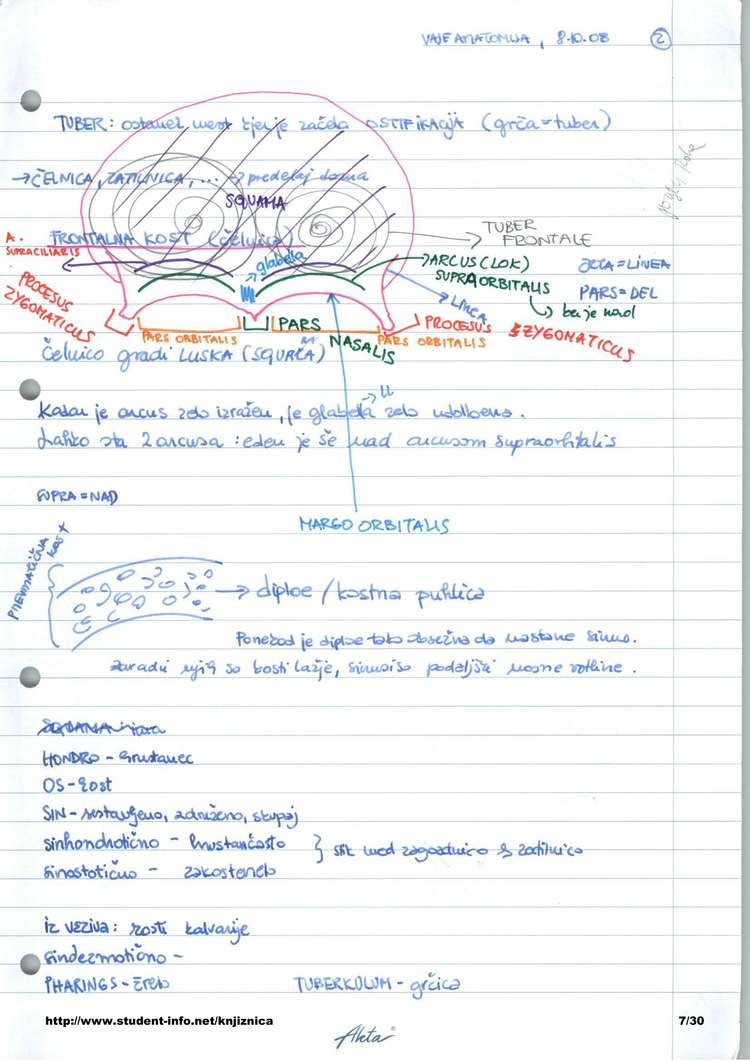 VAJE ANATOMIJA, 8.10.08 2
TUBER: ostanek mest kjer je začela OSIFIKACIJA (grča = tuber)
→ ČELNICA, ZATILNICA, ... → predelaj doma
SQUAMA
FRONTALNA KOST (čelnica)
TUBER
FRONTALE
A.
SUPRACILIARIS
glabela
ARCUS (LOK)
SUPRAORBITALIS
ČRTA = LINEA
PARS = DEL
LINEA
ker je nad
PROCESUS
ZYGOMATICUS
PARS ORBITALIS
PARS
NASALIS
PROCESUS
ZYGOMATICUS
PARS ORBITALIS
Čelnico gradi LUSKA (SQUAMA)
Kadar je arcus zelo izražen, je glabela zelo udolbena.
Lahko sta 2 arcusa: eden je še nad arcusom supraorbitalis
SUPRA = NAD
MARGO ORBITALIS
PNEVMATIČNA
KOST
→ diploe / kostna puhlica
Ponekod je diploe tako obsežna da nastane sinus.
zaradi njih so kosti lažje, sinusi so podaljški nosne votline.
HONDRO - hrustanec
OS - kost
SIN - sestavljeno, združeno, skupaj
sinhondrotično - hrustančasto
sinostotično - zakostenelo
} stik med zagozdnico & zatilnico
iz veziva: kosti kalvarije
sindezmotično -
PHARINGS - žrelo
TUBERKULUM - grčica
http://www.student-info.net/knjiznica
7/30
Akta